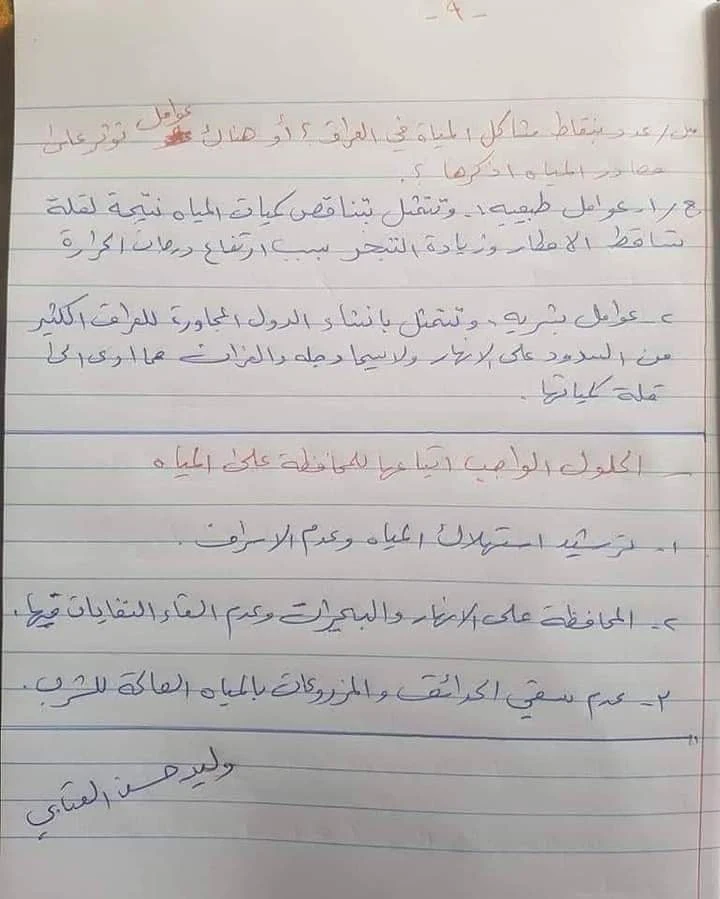 - ٩ -
س/ عدد بنقاط مشاكل المياة في العراق ؟ أو هناك عوامل توثر على
مصادر المياه اذكرها ؟.
ج/ ١- عوامل طبيعيه :- وتتمثل بتناقص كميات المياه نتيجة لقلة
تساقط الامطار وزيادة التبخر بسبب ارتفاع درجات الحرارة
٢- عوامل بشريه ، وتتمثل بانشاء الدول المجاورة للعراق الكثير
من السدود على الانهار ولاسيما دجله والفرات مما ادى الى
قلة كمياتها .
ـ الحلول الواجب اتباعها للمحافظة على المياه
١- ترشيد استهلاك المياه وعدم الاسراف .
٢- المحافظة على الانهار والبحيرات وعدم القاء النفايات فيها .
٣- عدم سقي الحدائق والمزروعات بالمياه الصالحة للشرب .
وليد حسن العتابي